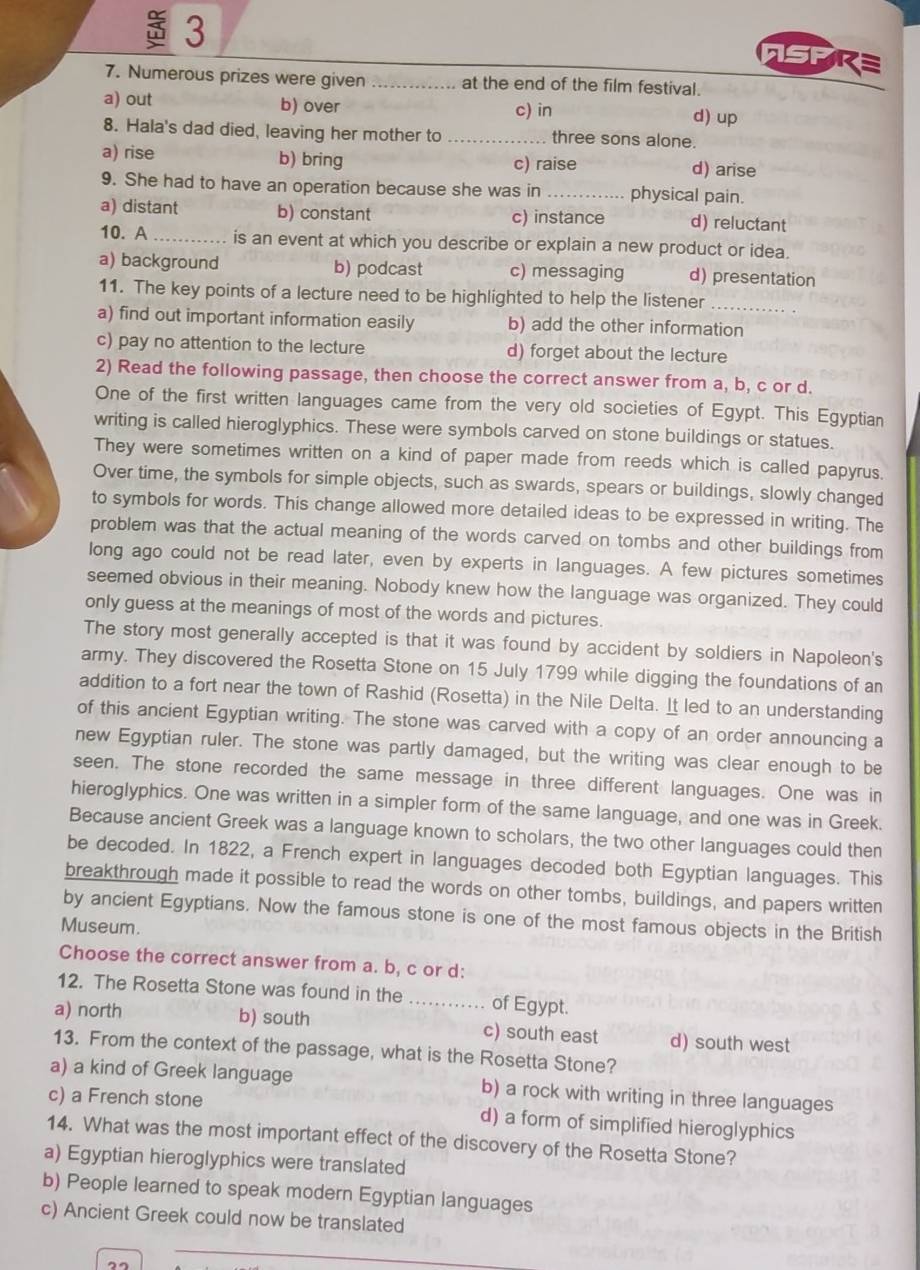 YEAR 3
ASPIRE
7. Numerous prizes were given ............. at the end of the film festival.
a) out b) over c) in d) up
8. Hala's dad died, leaving her mother to ............... three sons alone.
a) rise b) bring c) raise d) arise
9. She had to have an operation because she was in ............ physical pain.
a) distant b) constant c) instance d) reluctant
10. A ............ is an event at which you describe or explain a new product or idea.
a) background b) podcast c) messaging d) presentation
11. The key points of a lecture need to be highlighted to help the listener ............ .
a) find out important information easily b) add the other information
c) pay no attention to the lecture d) forget about the lecture
2) Read the following passage, then choose the correct answer from a, b, c or d.
One of the first written languages came from the very old societies of Egypt. This Egyptian
writing is called hieroglyphics. These were symbols carved on stone buildings or statues.
They were sometimes written on a kind of paper made from reeds which is called papyrus.
Over time, the symbols for simple objects, such as swards, spears or buildings, slowly changed
to symbols for words. This change allowed more detailed ideas to be expressed in writing. The
problem was that the actual meaning of the words carved on tombs and other buildings from
long ago could not be read later, even by experts in languages. A few pictures sometimes
seemed obvious in their meaning. Nobody knew how the language was organized. They could
only guess at the meanings of most of the words and pictures.
The story most generally accepted is that it was found by accident by soldiers in Napoleon's
army. They discovered the Rosetta Stone on 15 July 1799 while digging the foundations of an
addition to a fort near the town of Rashid (Rosetta) in the Nile Delta. It led to an understanding
of this ancient Egyptian writing. The stone was carved with a copy of an order announcing a
new Egyptian ruler. The stone was partly damaged, but the writing was clear enough to be
seen. The stone recorded the same message in three different languages. One was in
hieroglyphics. One was written in a simpler form of the same language, and one was in Greek.
Because ancient Greek was a language known to scholars, the two other languages could then
be decoded. In 1822, a French expert in languages decoded both Egyptian languages. This
breakthrough made it possible to read the words on other tombs, buildings, and papers written
by ancient Egyptians. Now the famous stone is one of the most famous objects in the British
Museum.
Choose the correct answer from a. b, c or d:
12. The Rosetta Stone was found in the ............ of Egypt.
a) north b) south c) south east d) south west
13. From the context of the passage, what is the Rosetta Stone?
a) a kind of Greek language b) a rock with writing in three languages
c) a French stone d) a form of simplified hieroglyphics
14. What was the most important effect of the discovery of the Rosetta Stone?
a) Egyptian hieroglyphics were translated
b) People learned to speak modern Egyptian languages
c) Ancient Greek could now be translated